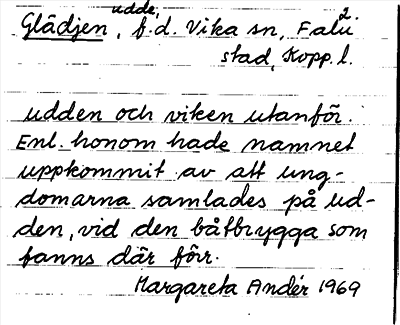 udde,
Glädjen, f.d. Vika sn, Falu 2
stad, Kopp. l.
udden och viken utanför.
Enl. honom hade namnet
uppkommit av att ung-
domarna samlades på ud-
den, vid den båtbrygga som
fanns där förr.
Margareta Andér 1969